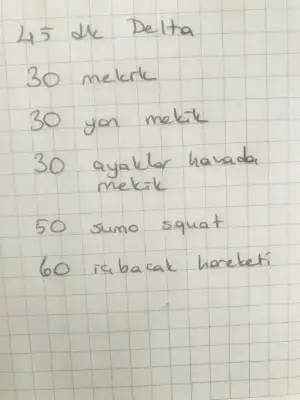 45 dk Delta
30 mekik
30 yan mekik
30 ayaklar havada
mekik
50 sumo squat
60 içbacak hareketi